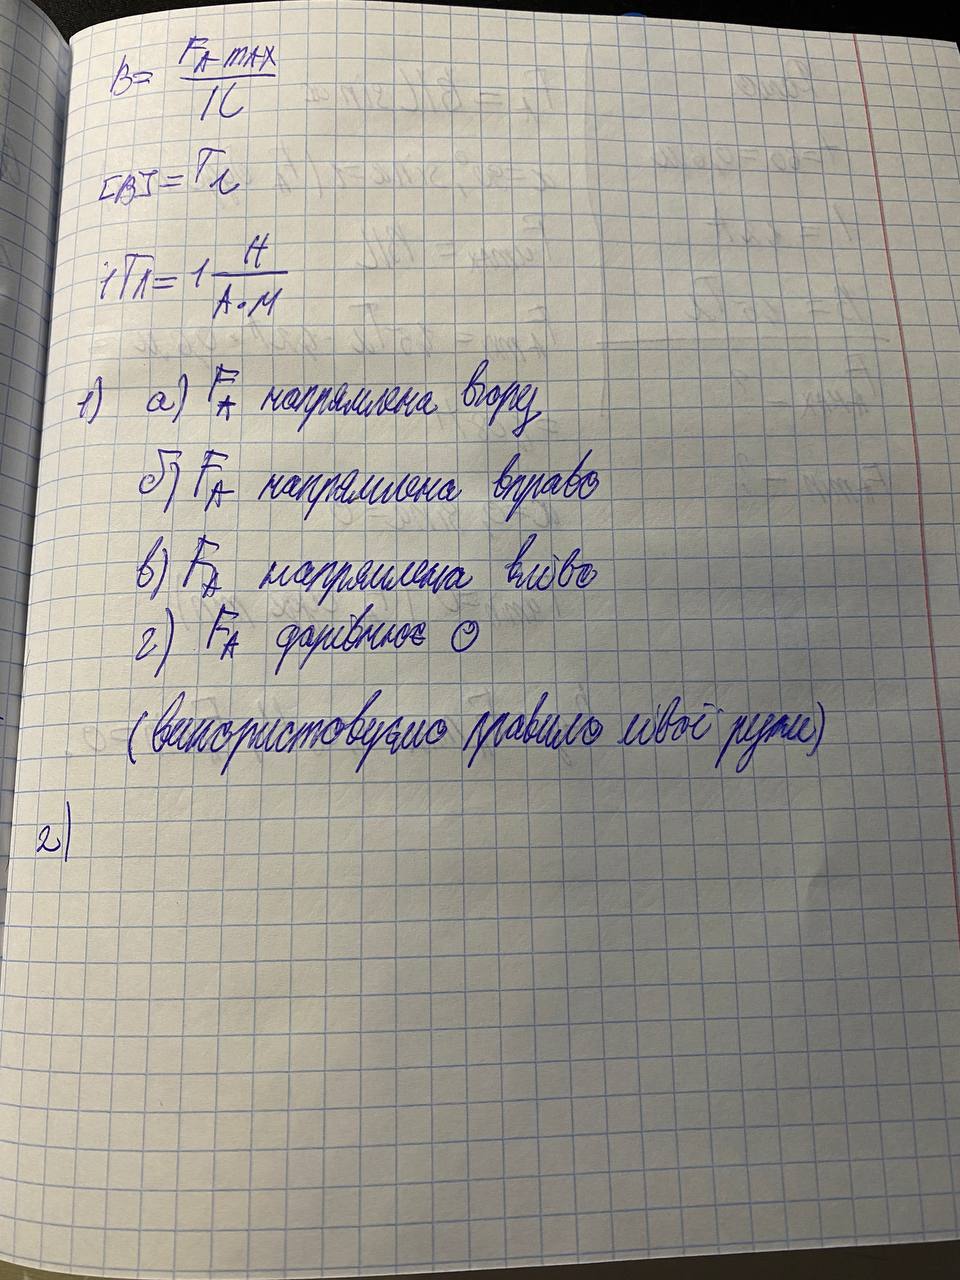 B = F_A max / Il
[B] = Тл
1 Тл = 1 Н / А·м
1) а) F_A напрямлена вгору
б) F_A напрямлена вправо
в) F_A напрямлена вліво
г) F_A дорівнює 0
(використовуємо правило лівої руки)
2)